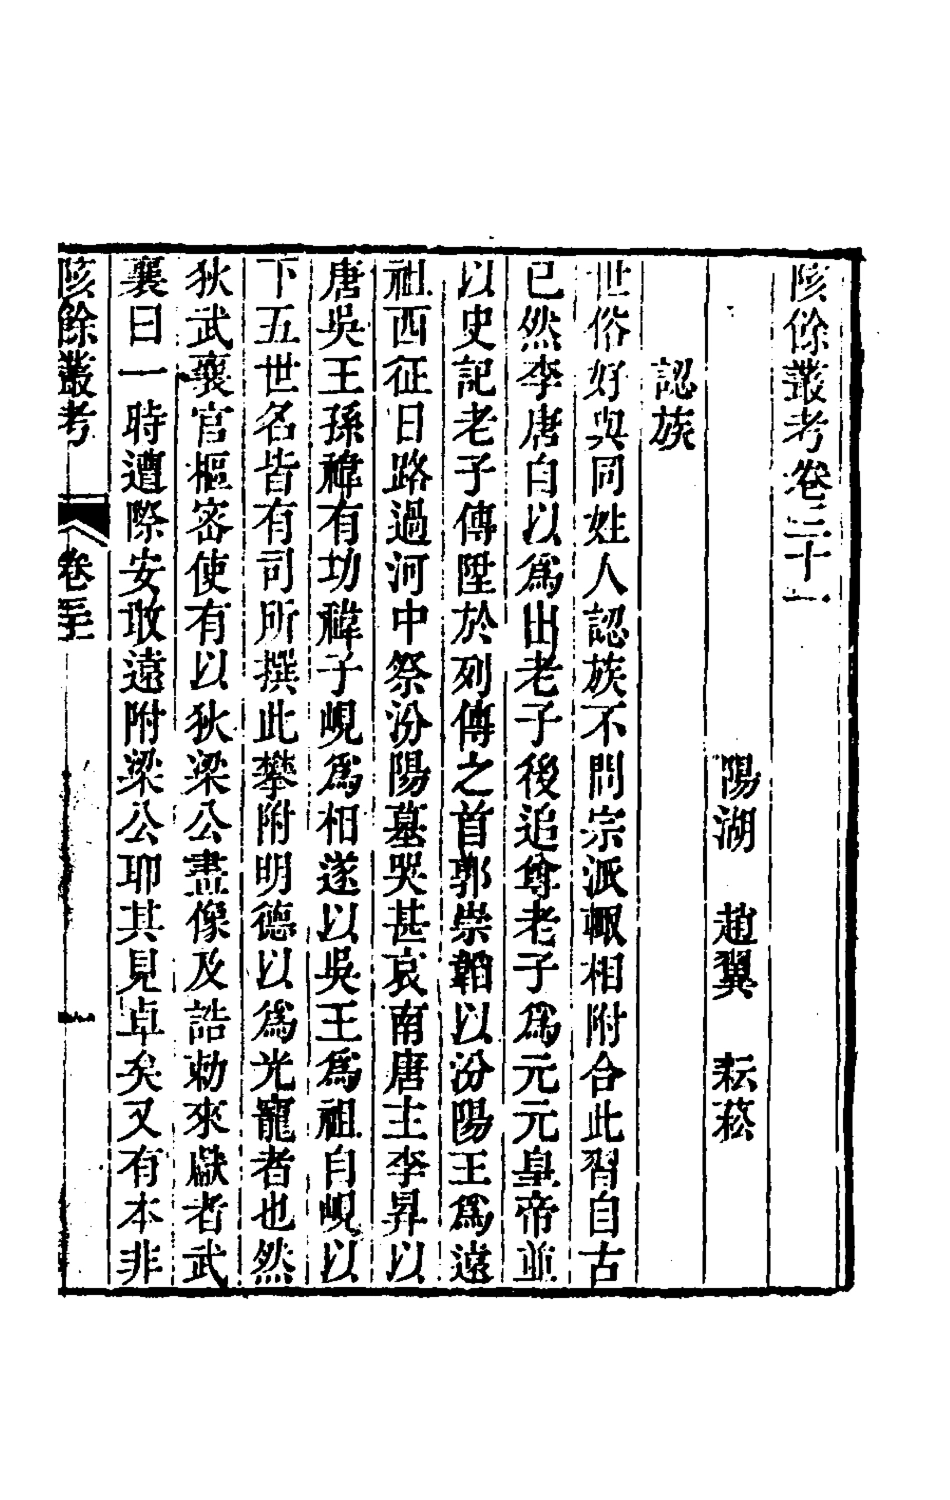 陔餘叢考卷三十一
陽湖　趙翼　耘菘
認族
世俗好與同姓人認族不問宗派輒相附合此習自古
已然李唐自以爲出老子後追尊老子爲元元皇帝並
以史記老子傳陞於列傳之首郭崇韜以汾陽王爲遠
祖西征日路過河中祭汾陽墓哭甚哀南唐主李昇以
唐吳王孫禕有功禕子峴爲相遂以吳王爲祖自峴以
下五世名皆有司所撰此攀附明德以爲光寵者也然
狄武襄官樞密使有以狄梁公畫像及誥勅來獻者武
襄曰一時遭際安敢遠附梁公卽其見卓矣又有本非
陔餘叢考　卷三十一　一